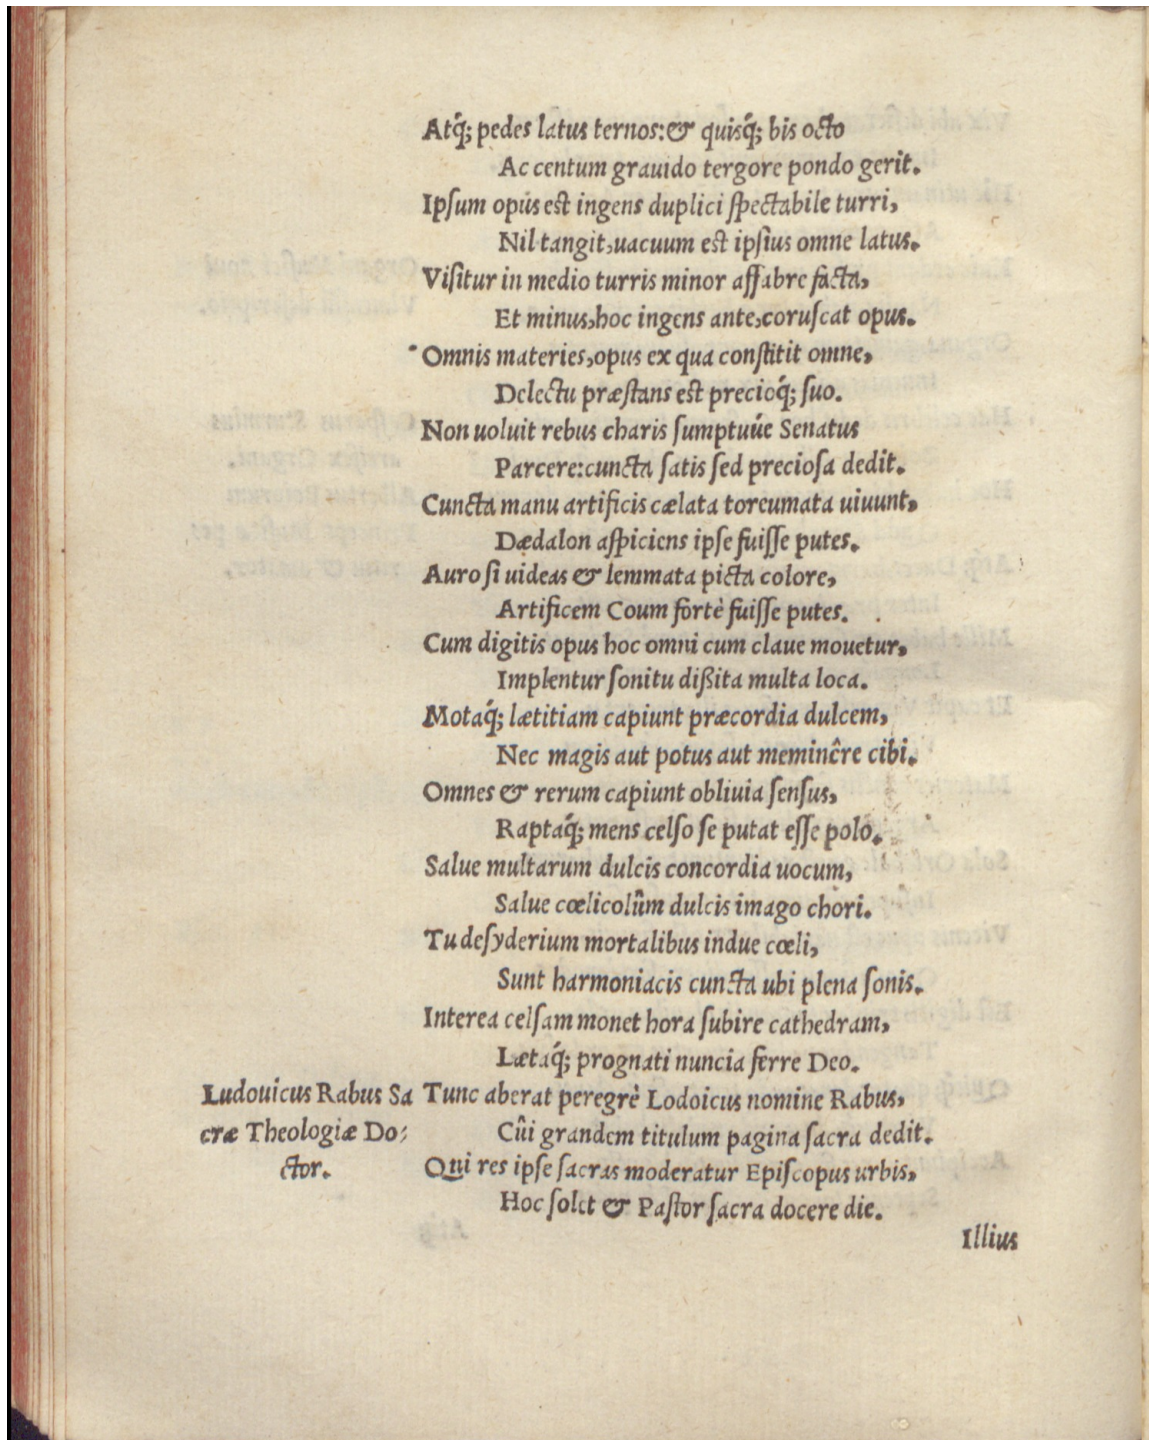 Atq́; pedes latus ternos:& quisq́; bis octo
Ac centum grauido tergore pondo gerit.
Ipſum opus est ingens duplici ſpectabile turri,
Nil tangit,uacuum est ipſius omne latus.
Viſitur in medio turris minor affabre facta,
Et minus,hoc ingens ante,coruſcat opus.
Omnis materies,opus ex qua conſtitit omne,
Delectu præſtans est precioq́; ſuo.
Non uoluit rebus charis ſumptuúe Senatus
Parcere:cuncta ſatis ſed precioſa dedit.
Cuncta manu artificis cælata toreumata uiuunt,
Dædalon aſpiciens ipſe fuiſſe putes.
Auro ſi uideas & lemmata picta colore,
Artificem Coum fortè fuiſſe putes.
Cum digitis opus hoc omni cum claue mouetur,
Implentur ſonitu dißita multa loca.
Motaq́; lætitiam capiunt præcordia dulcem,
Nec magis aut potus aut meminêre cibi.
Omnes & rerum capiunt obliuia ſenſus,
Raptaq́; mens celſo ſe putat eſſe polo.
Salue multarum dulcis concordia uocum,
Salue cœlicolûm dulcis imago chori.
Tu deſyderium mortalibus indue cœli,
Sunt harmoniacis cuncta ubi plena ſonis.
Interea celſam monet hora ſubire cathedram,
Lætaq́; prognati nuncia ferre Deo.
Ludouicus Rabus Sa
Tunc aberat peregrè Lodoicus nomine Rabus,
cræ Theologiæ Do⸗
Cûi grandem titulum pagina ſacra dedit.
ctor.
Qui res ipſe ſacras moderatur Epiſcopus urbis,
Hoc ſolet & Paſtor ſacra docere die.
Illius